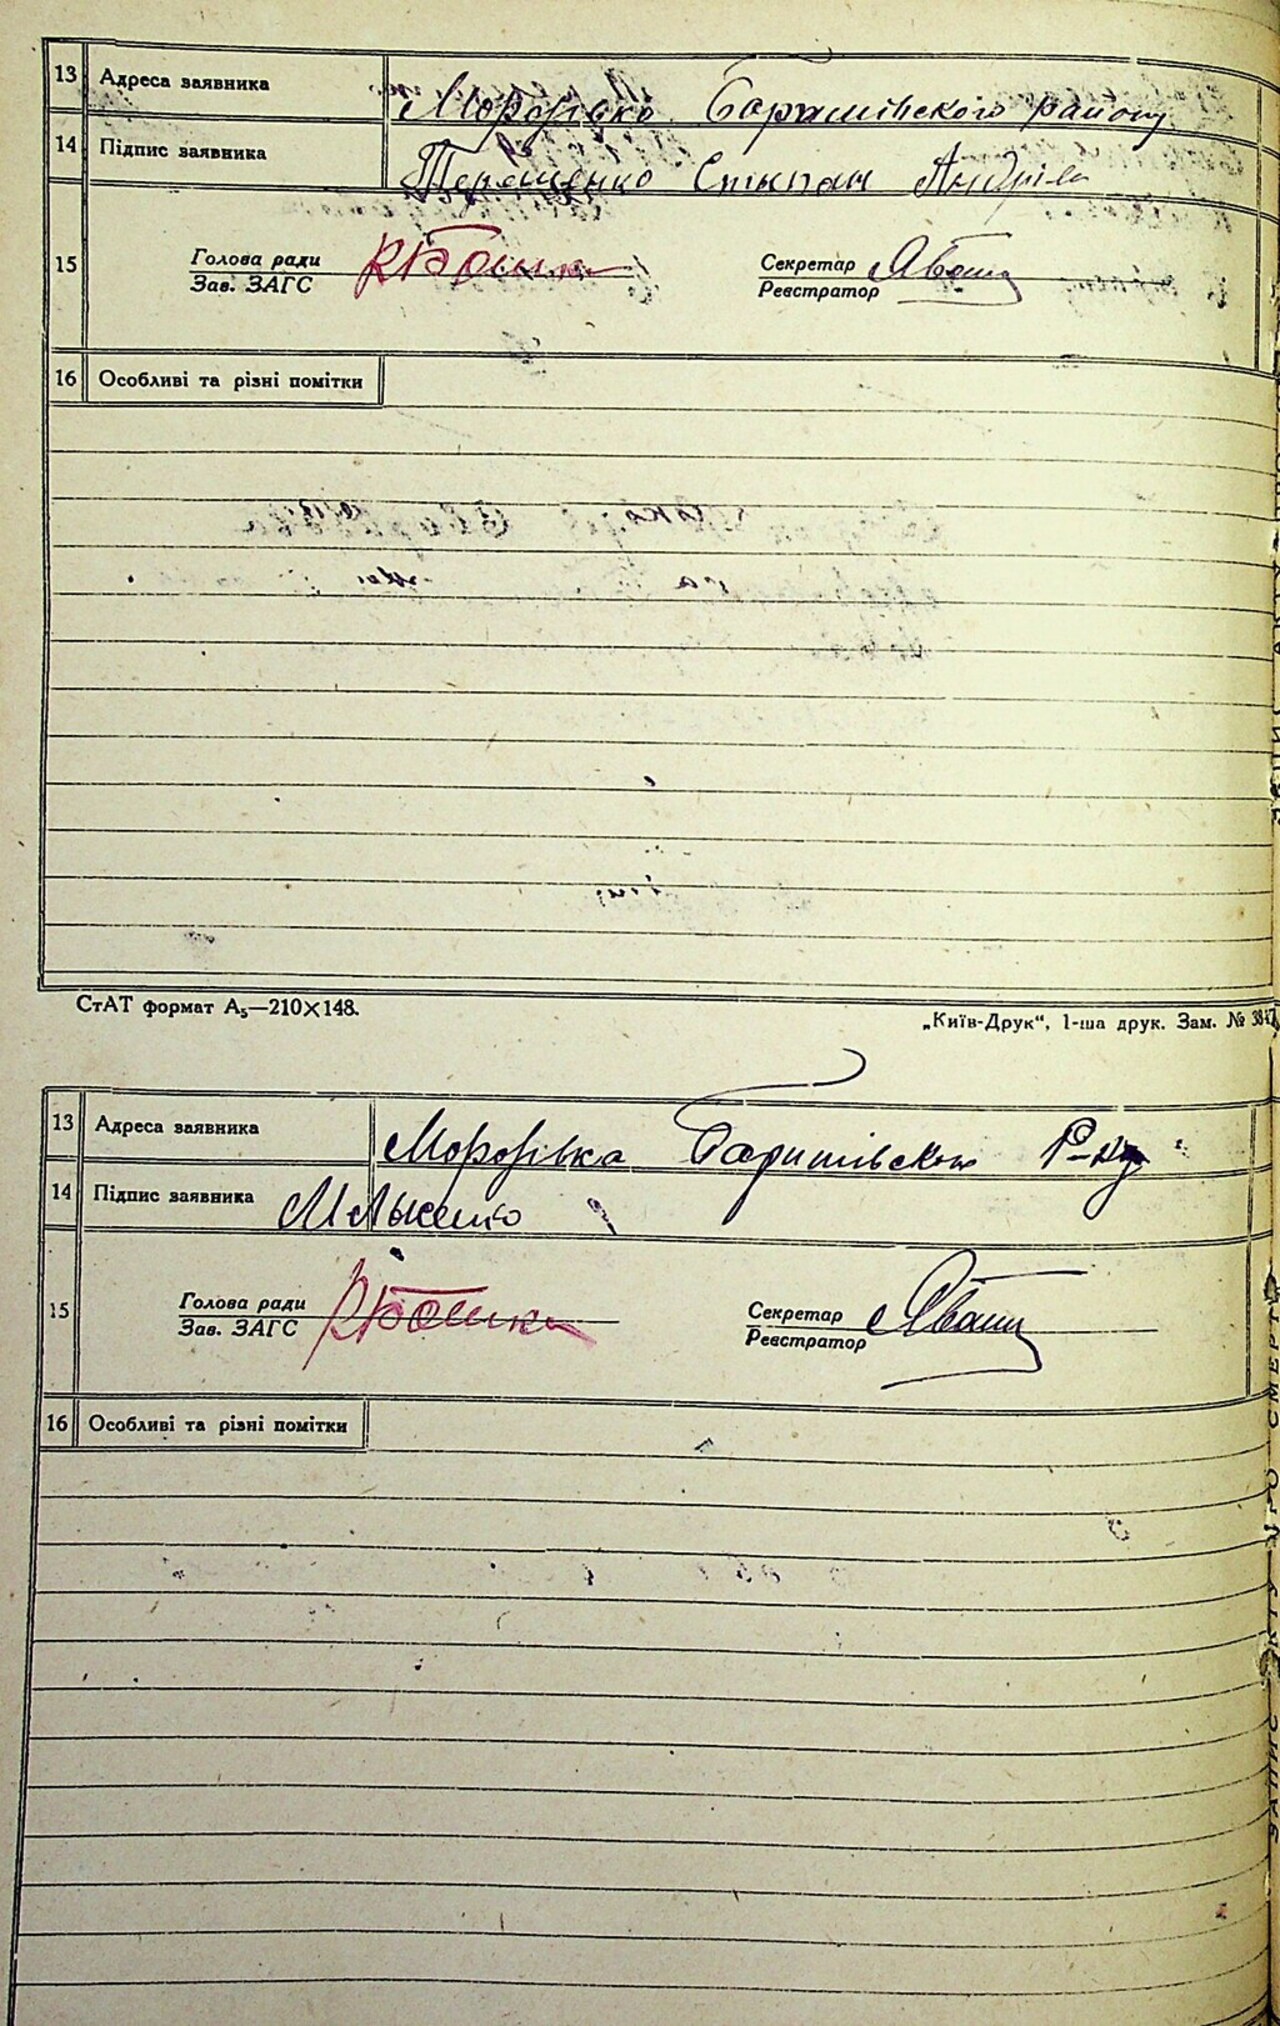 13 Адреса заявника Морозівка Баришівського району
14 Підпис заявника Терещенко Степан Андрів
15 Голова ради Секретар
Зав. ЗАГС Реєстратор
16 Особливі та різні помітки
СтАТ формат А₅—210×148.
„Київ-Друк“, 1-ша друк. Зам. № 3847
13 Адреса заявника Морозівка Баришівськ Р-ну
14 Підпис заявника
15 Голова ради Секретар
Зав. ЗАГС Реєстратор
16 Особливі та різні помітки